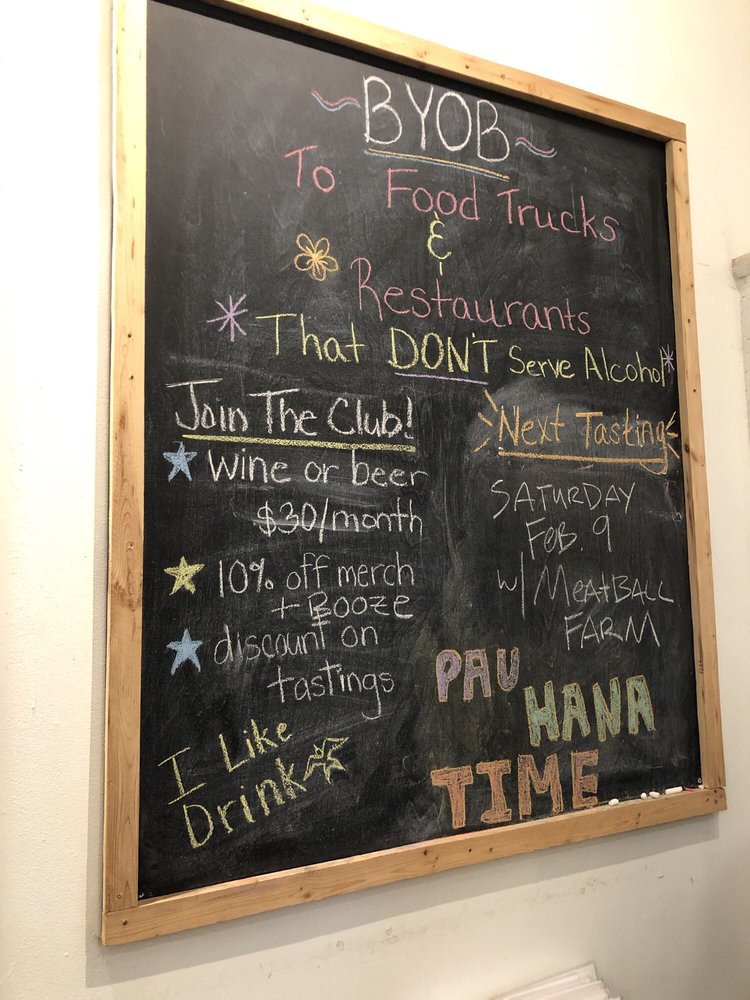 ~BYOB~
To Food Trucks
&
Restaurants
*That DON'T Serve Alcohol*
Join The Club!
wine or beer
$30/month
10% off merch
+ Booze
discount on
tastings
I Like
Drink
Next Tasting
SATURDAY
FEB. 9
w/ MEATBALL
FARM
PAU
HANA
TIME